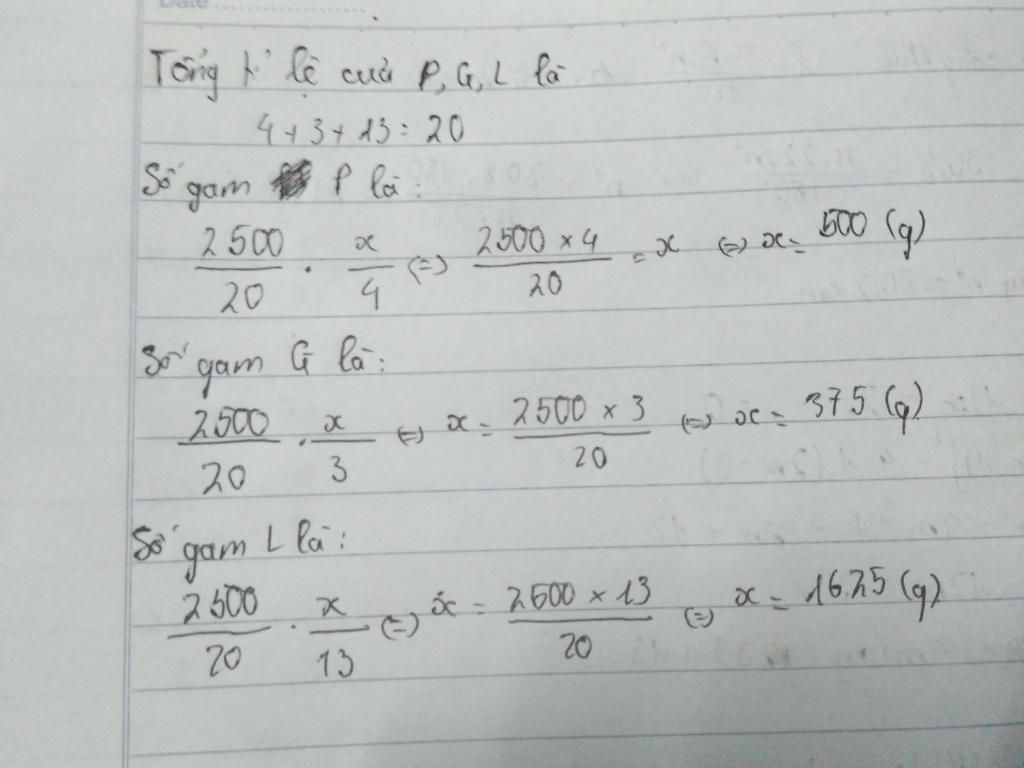 Date
Tổng tỉ lệ của P, G, L là
4 + 3 + 13 = 20
Số gam P là:
2500/20 . x/4 (=) 2500 x 4/20 = x (=) x = 500 (g)
Số gam G là:
2500/20 . x/3 (=) x = 2500 x 3/20 (=) x = 375 (g)
Số gam L là:
2500/20 . x/13 (=) x = 2500 x 13/20 (=) x = 1625 (g)